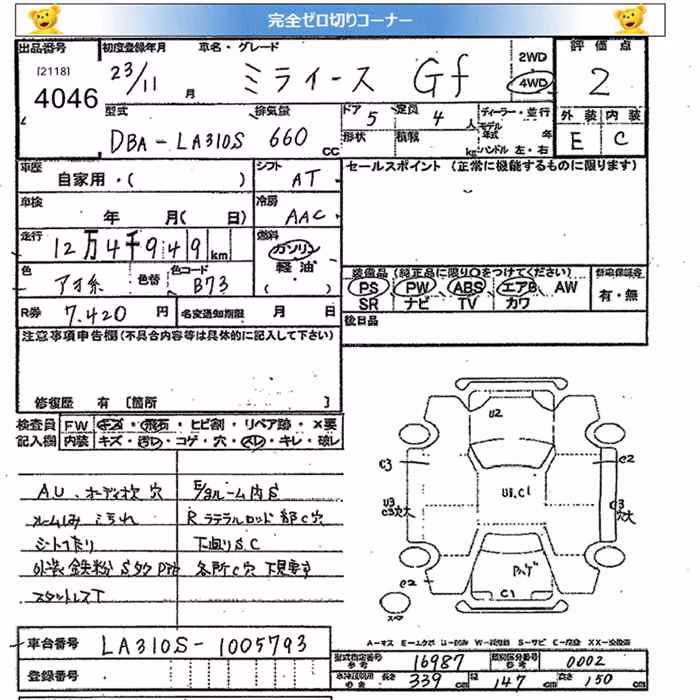 完全ゼロ切りコーナー
出品番号 初度登録年月 車名・グレード 2WD 評価点
[2118] 4046 23/11 月 ミライース Gf 4WD 2
型式 排気量 ドア 5 定員 4 人 ディーラー・並行 外装 内装
DBA-LA310S 660 cc 形状 積載 kg モデル年式 年 ハンドル 左・右 E C
車歴 シフト セールスポイント(正常に機能するものに限ります)
自家用・( ) AT
車検 冷房
年 月( 日) AAC
走行 燃料
12万4千949km ガソリン
軽油
色 色替 色コード ( ) 装備品(純正品に限り○をつけてください) 新車保証書
アオ系 B73 PS PW ABS エアB AW 有・無
SR ナビ TV カワ
R券 7.420 円 名変通知期限 月 日 後日品
注意事項申告欄(不具合内容等は具体的に記入して下さい)
修復歴 有 [箇所 ]
検査員 FW キズ・飛石・ヒビ割・リペア跡・×要
記入欄 内装 キズ・汚レ・コゲ・穴・スレ・キレ・破レ
A.U、オーディオ欠 穴 E/gルーム内S
ルームしみ 汚れ Rラテラルロッド部C穴
シート下廻り 下廻りS.C
外装鉄粉 各所C穴
スタットレスT
U2
C3 C2
U3 U1.C1 C3
C3穴大 穴大
C2 C1
スペア
A-キズ E-エクボ
車台番号 LA310S-1005793
登録番号
型式指定番号 16987 類別区分番号 0002
長さ 339 cm 幅 147 cm 高さ 150 cm